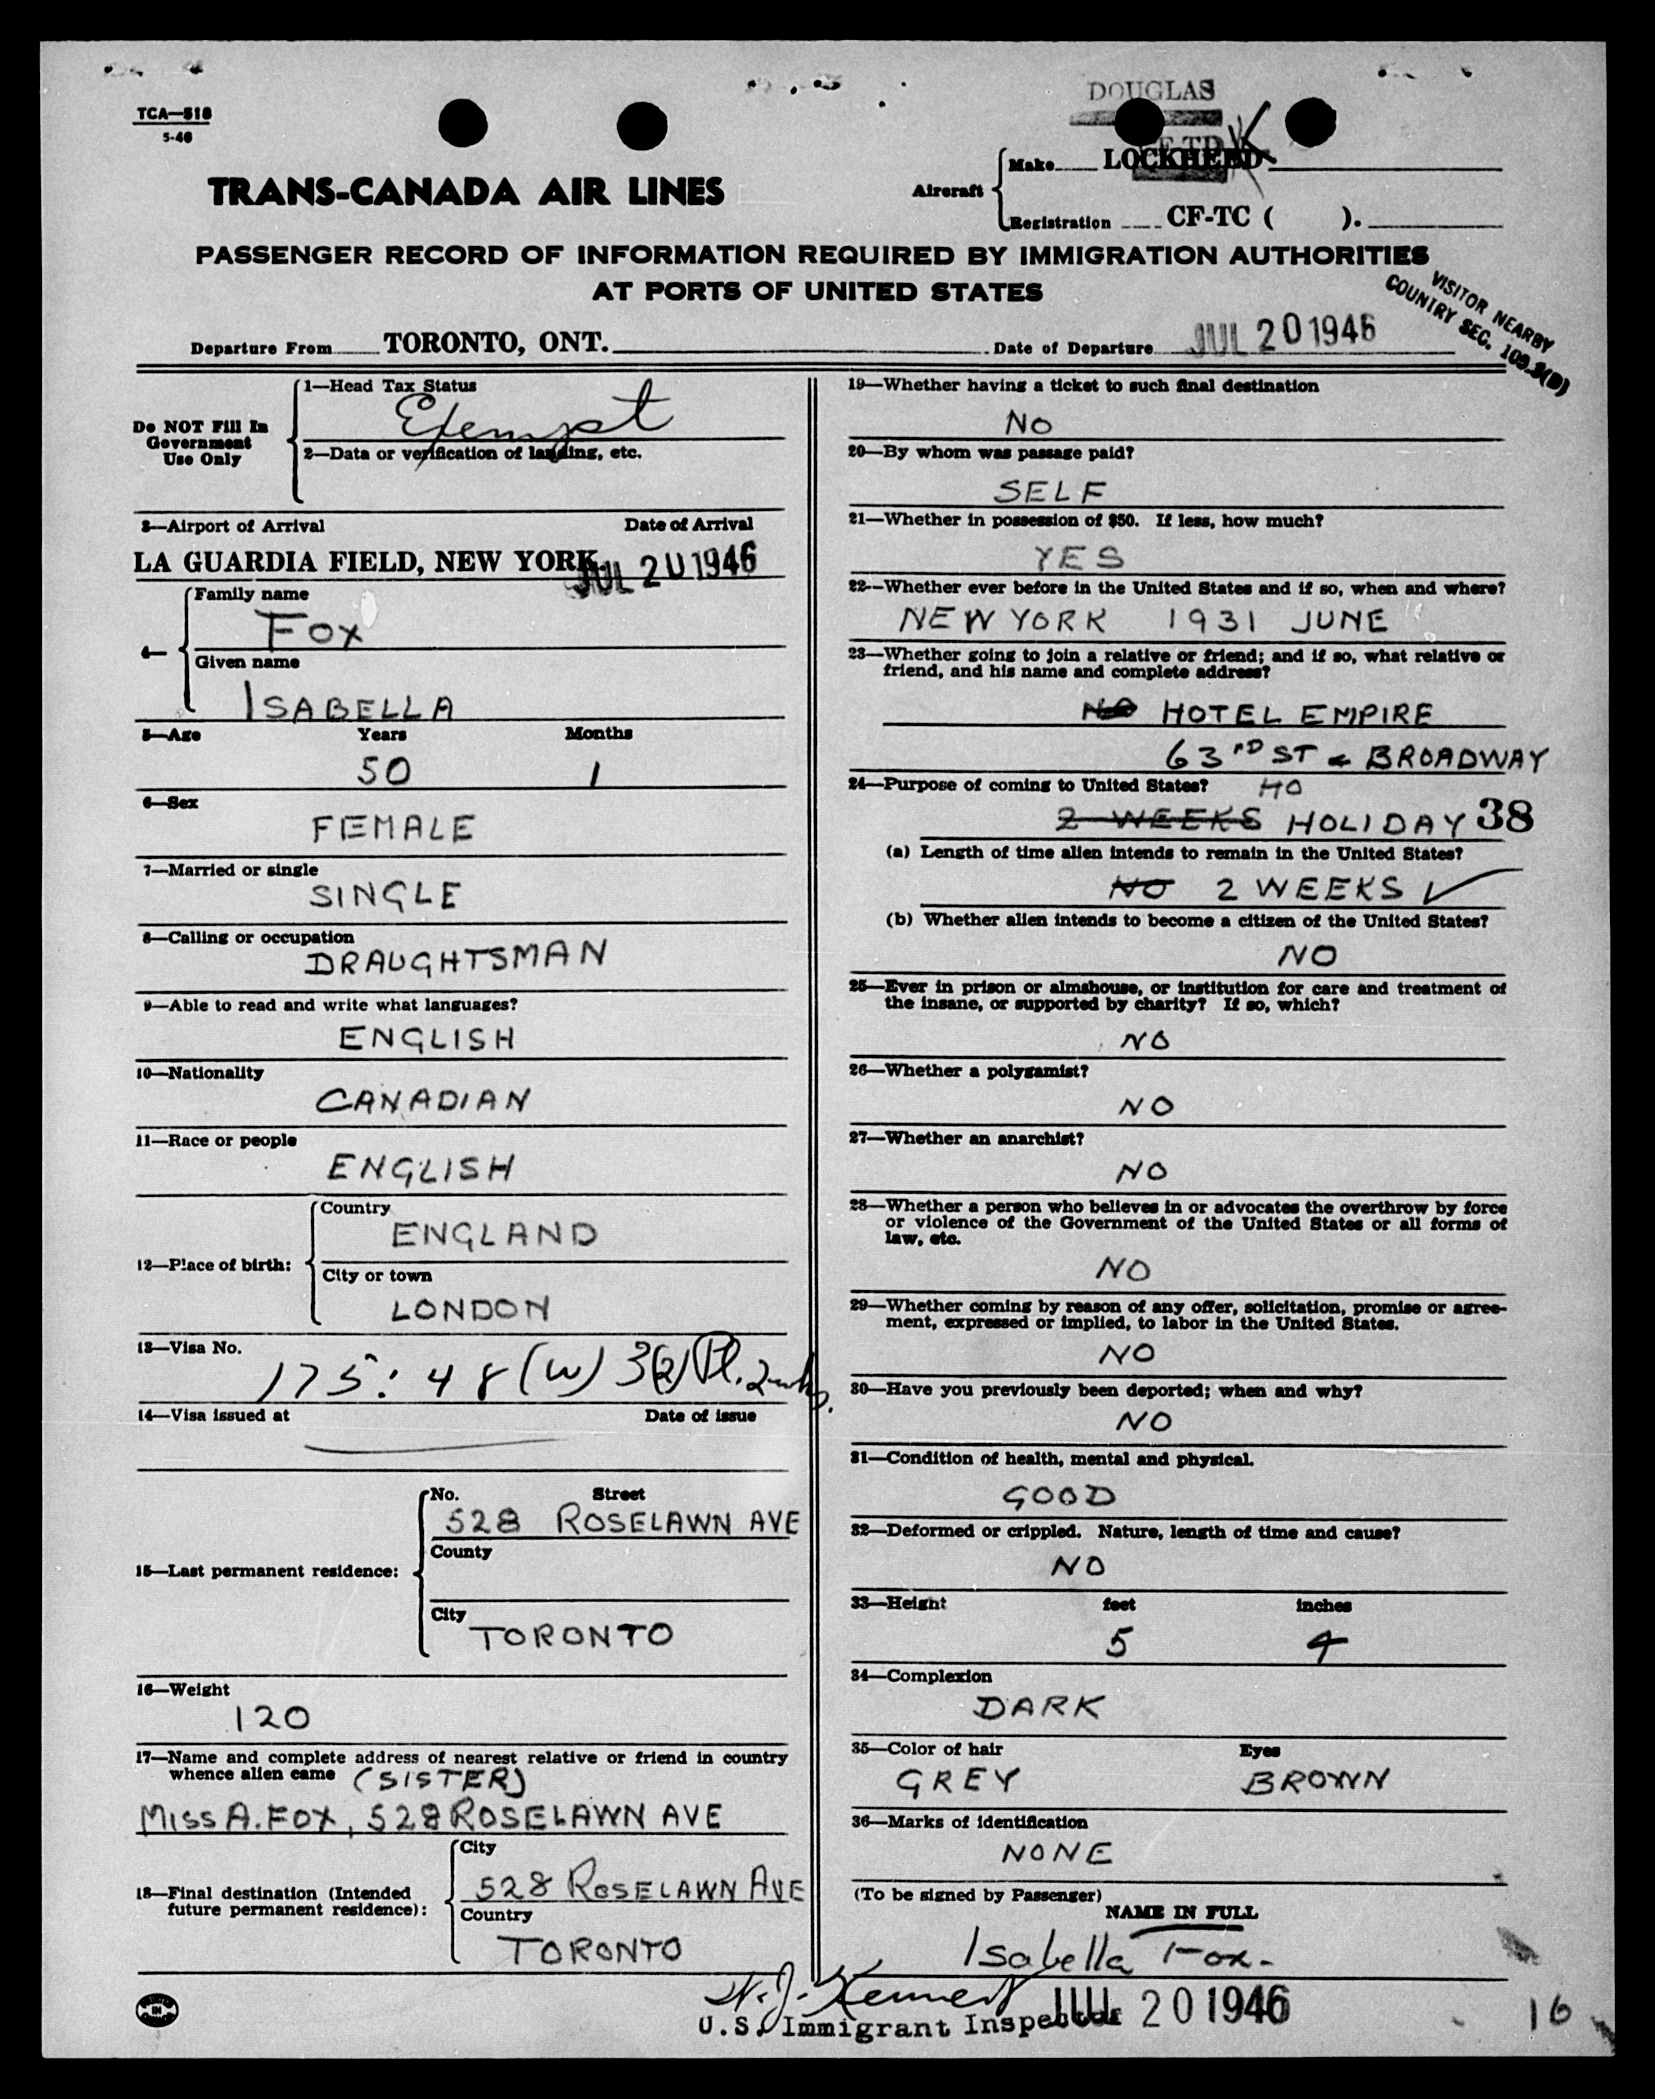 TCA—518
5-46
DOUGLAS
TRANS-CANADA AIR LINES
Aircraft
Make LOCKHEED
Registration CF-TC ( ).
PASSENGER RECORD OF INFORMATION REQUIRED BY IMMIGRATION AUTHORITIES
AT PORTS OF UNITED STATES
VISITOR NEARBY
COUNTRY SEC. 109.3(D)
Departure From TORONTO, ONT. Date of Departure JUL 20 1946
Do NOT Fill In
Government
Use Only
1—Head Tax Status
Exempt
2—Data or verification of landing, etc.
3—Airport of Arrival Date of Arrival
LA GUARDIA FIELD, NEW YORK. JUL 20 1946
4—
Family name
FOX
Given name
ISABELLA
5—Age Years Months
50 1
6—Sex
FEMALE
7—Married or single
SINGLE
8—Calling or occupation
DRAUGHTSMAN
9—Able to read and write what languages?
ENGLISH
10—Nationality
CANADIAN
11—Race or people
ENGLISH
12—Place of birth:
Country
ENGLAND
City or town
LONDON
13—Visa No.
175: 48 (W) 3(2) Pl. 2 wks.
14—Visa issued at Date of issue
15—Last permanent residence:
No. Street
528 ROSELAWN AVE
County
City
TORONTO
16—Weight
120
17—Name and complete address of nearest relative or friend in country
whence alien came (SISTER)
MISS A. FOX, 528 ROSELAWN AVE
18—Final destination (Intended
future permanent residence):
City
528 ROSELAWN AVE
Country
TORONTO
19—Whether having a ticket to such final destination
NO
20—By whom was passage paid?
SELF
21—Whether in possession of $50. If less, how much?
YES
22—Whether ever before in the United States and if so, when and where?
NEW YORK 1931 JUNE
23—Whether going to join a relative or friend; and if so, what relative or
friend, and his name and complete address?
NO HOTEL EMPIRE
63RD ST & BROADWAY
24—Purpose of coming to United States? HO
2 WEEKS HOLIDAY 38
(a) Length of time alien intends to remain in the United States?
NO 2 WEEKS ✓
(b) Whether alien intends to become a citizen of the United States?
NO
25—Ever in prison or almshouse, or institution for care and treatment of
the insane, or supported by charity? If so, which?
NO
26—Whether a polygamist?
NO
27—Whether an anarchist?
NO
28—Whether a person who believes in or advocates the overthrow by force
or violence of the Government of the United States or all forms of
law, etc.
NO
29—Whether coming by reason of any offer, solicitation, promise or agree-
ment, expressed or implied, to labor in the United States.
NO
30—Have you previously been deported; when and why?
NO
31—Condition of health, mental and physical.
GOOD
32—Deformed or crippled. Nature, length of time and cause?
NO
33—Height feet inches
5 4
34—Complexion
DARK
35—Color of hair Eyes
GREY BROWN
36—Marks of identification
NONE
(To be signed by Passenger)
NAME IN FULL
Isabella Fox.
U.S. Immigrant Inspector JUL 20 1946
16